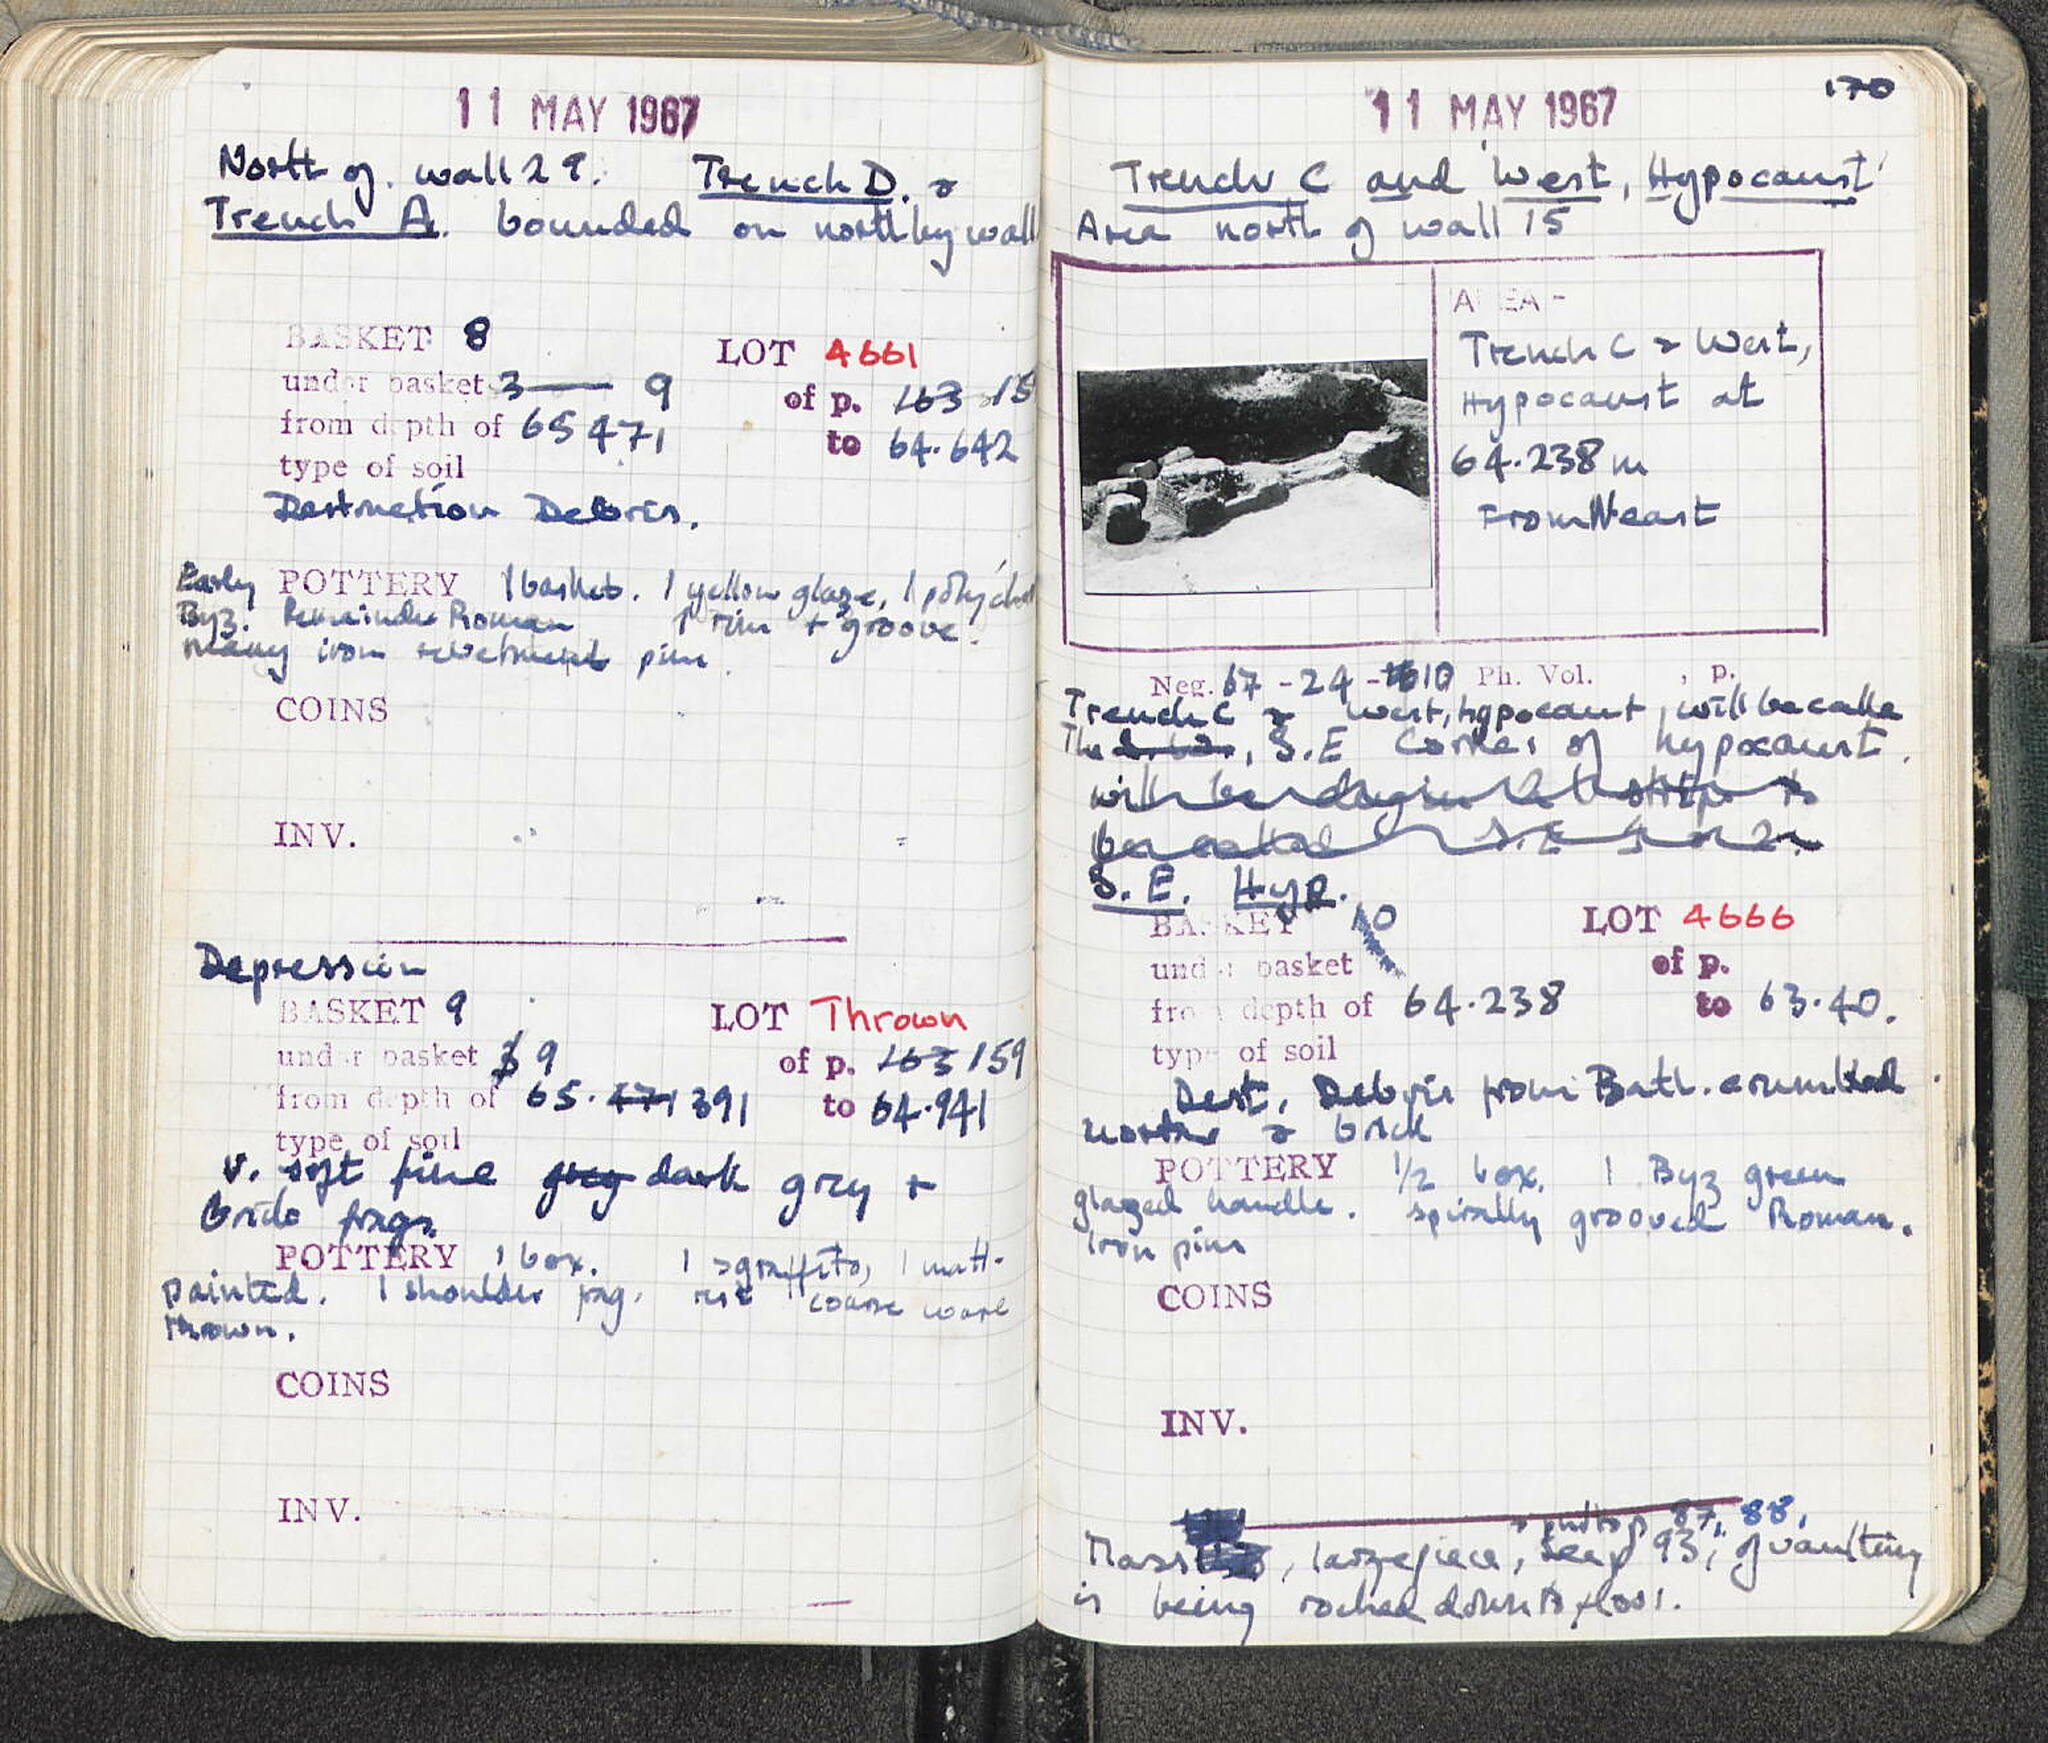 11 MAY 1967
North of wall 29. Trench D. &
Trench A. bounded on north by wall
BASKET 8 LOT 4661
under basket 3 — 9 of p. 163 15
from depth of 65 471 to 64.642
type of soil
Destruction Debris.
Early POTTERY 1 basket. 1 yellow glaze, 1
Byz. Remainder Roman 1 rim + groove.
Many iron revetment pins.
COINS
INV.
Depression
BASKET 9 LOT Thrown
under basket 9 of p. 163 159
from depth of 65.471 391 to 64.941
type of soil
v. soft fine grey dark grey +
brick frags.
POTTERY 1 box. 1 sgraffito, 1 matt-
painted. 1 shoulder frag. rest coarse ware
thrown.
COINS
INV.
11 MAY 1967 170
Trench C and West, Hypocaust
Area north of wall 15
AREA -
Trench C & West,
Hypocaust at
64.238 m
From Neast
Neg. 67 - 24 - 10 Ph. Vol. , p.
Trench C & West, hypocaust, will be calle
The S.E Corner of hypocaust.
will be
be called S.E
S.E. Hyp.
BASKET 10 LOT 4666
under basket of p.
from depth of 64.238 to 63.40.
type of soil
Dest. Debris from Bath. crumbled
mortar & brick
POTTERY 1/2 box. 1 Byz green
glazed handle. spirally grooved Roman.
Iron pins
COINS
INV.
87, 88,
large piece, see p 93, of vaulting
is being down to floor.